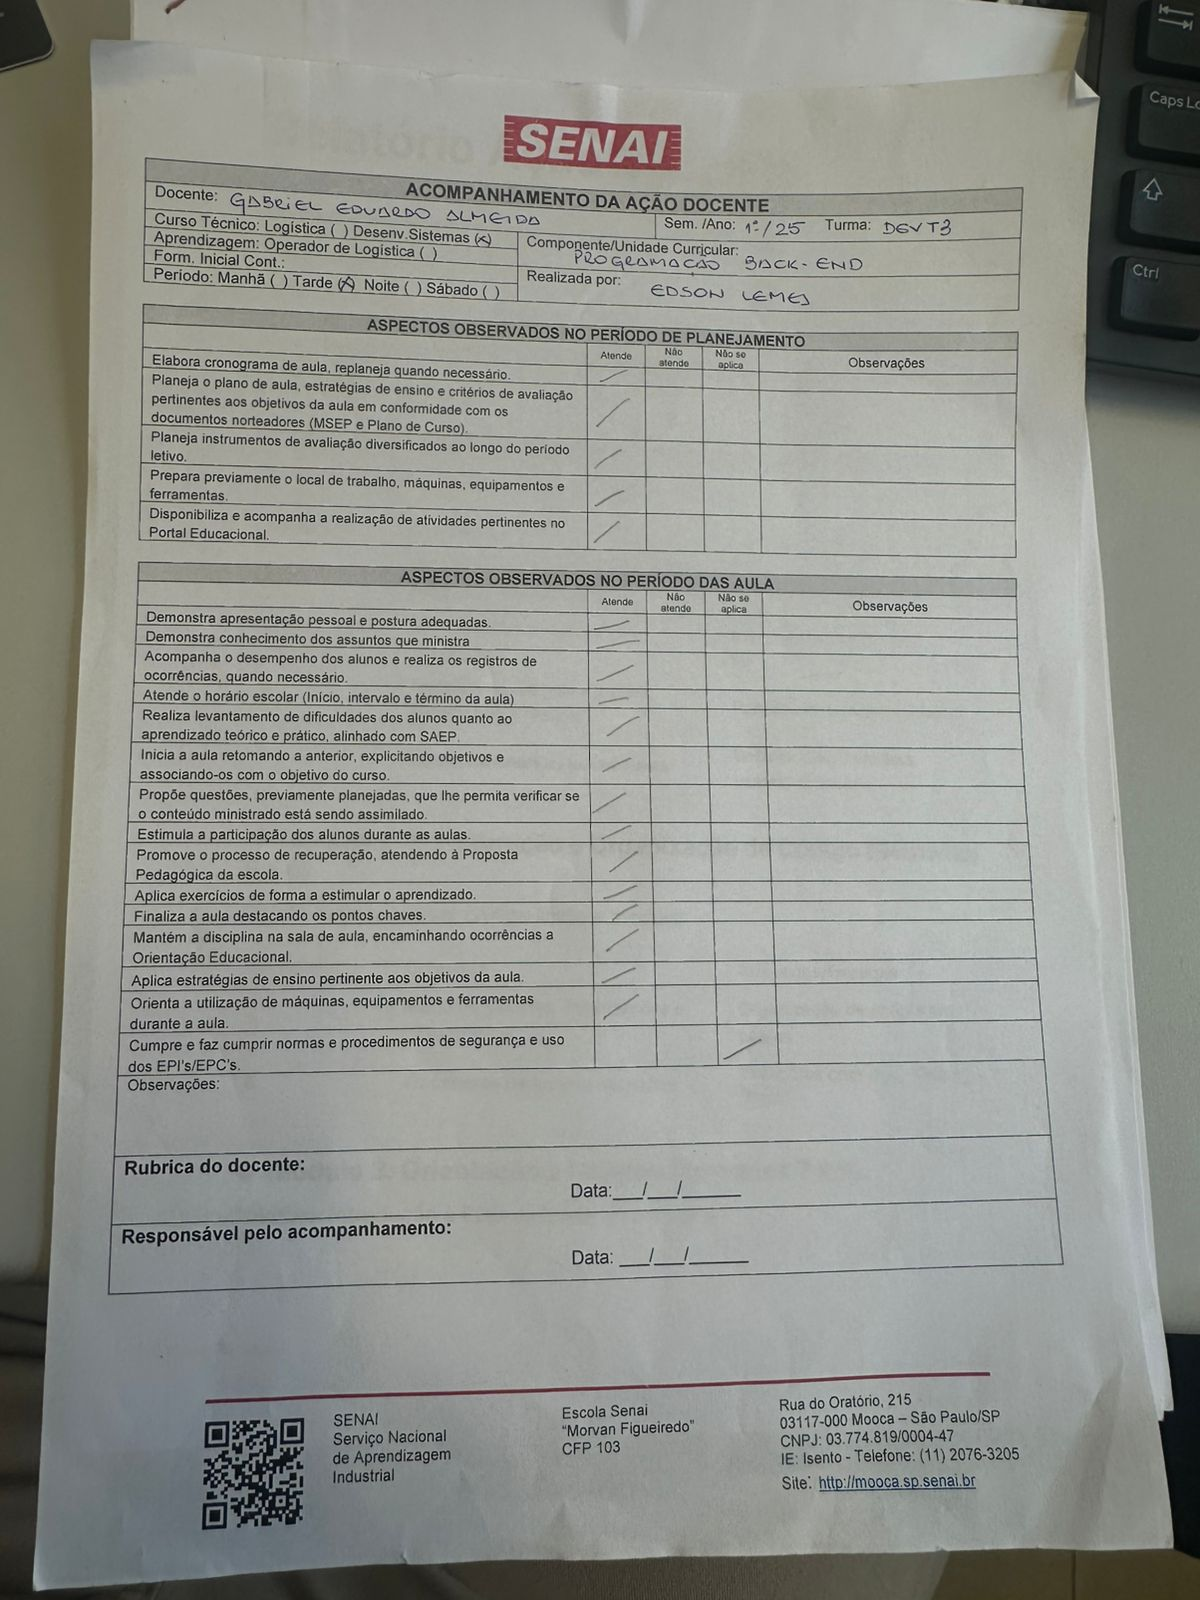 SENAI
ACOMPANHAMENTO DA AÇÃO DOCENTE
Docente: GABRIEL EDUARDO ALMEIDA
Sem. /Ano: 1º/25 Turma: DEVT3
Curso Técnico: Logística ( ) Desenv.Sistemas (X)
Aprendizagem: Operador de Logística ( )
Form. Inicial Cont.:
Período: Manhã ( ) Tarde (X) Noite ( ) Sábado ( )
Componente/Unidade Curricular:
PROGRAMAÇÃO BACK-END
Realizada por: EDSON LEMES
ASPECTOS OBSERVADOS NO PERÍODO DE PLANEJAMENTO
Atende Não atende Não se aplica Observações
Elabora cronograma de aula, replaneja quando necessário.
Planeja o plano de aula, estratégias de ensino e critérios de avaliação
pertinentes aos objetivos da aula em conformidade com os
documentos norteadores (MSEP e Plano de Curso).
Planeja instrumentos de avaliação diversificados ao longo do período
letivo.
Prepara previamente o local de trabalho, máquinas, equipamentos e
ferramentas.
Disponibiliza e acompanha a realização de atividades pertinentes no
Portal Educacional.
ASPECTOS OBSERVADOS NO PERÍODO DAS AULA
Atende Não atende Não se aplica Observações
Demonstra apresentação pessoal e postura adequadas.
Demonstra conhecimento dos assuntos que ministra
Acompanha o desempenho dos alunos e realiza os registros de
ocorrências, quando necessário.
Atende o horário escolar (Início, intervalo e término da aula)
Realiza levantamento de dificuldades dos alunos quanto ao
aprendizado teórico e prático, alinhado com SAEP.
Inicia a aula retomando a anterior, explicitando objetivos e
associando-os com o objetivo do curso.
Propõe questões, previamente planejadas, que lhe permita verificar se
o conteúdo ministrado está sendo assimilado.
Estimula a participação dos alunos durante as aulas.
Promove o processo de recuperação, atendendo à Proposta
Pedagógica da escola.
Aplica exercícios de forma a estimular o aprendizado.
Finaliza a aula destacando os pontos chaves.
Mantém a disciplina na sala de aula, encaminhando ocorrências a
Orientação Educacional.
Aplica estratégias de ensino pertinente aos objetivos da aula.
Orienta a utilização de máquinas, equipamentos e ferramentas
durante a aula.
Cumpre e faz cumprir normas e procedimentos de segurança e uso
dos EPI's/EPC's.
Observações:
Rubrica do docente:
Data:___/___/______
Responsável pelo acompanhamento:
Data: ___/___/______
SENAI
Serviço Nacional
de Aprendizagem
Industrial
Escola Senai
“Morvan Figueiredo”
CFP 103
Rua do Oratório, 215
03117-000 Mooca – São Paulo/SP
CNPJ: 03.774.819/0004-47
IE: Isento - Telefone: (11) 2076-3205
Site: http://mooca.sp.senai.br
Ctrl